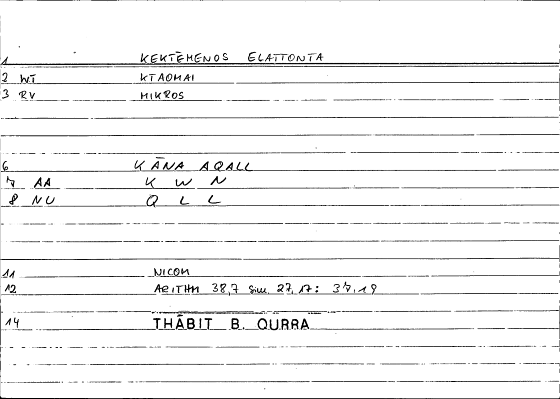 1 KEKTĒMENOS ELATTONTA
2 WT KTAOMAI
3 RV MIKROS
6 KĀNA AQALL
7 AA K W N
8 NU Q L L
11 NICOM
12 ARITHM 38,7 sim. 27,17: 37,19
14 THĀBIT B. QURRA